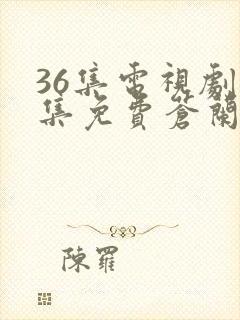 36集電視劇
集免費蒼蘭
陳羅